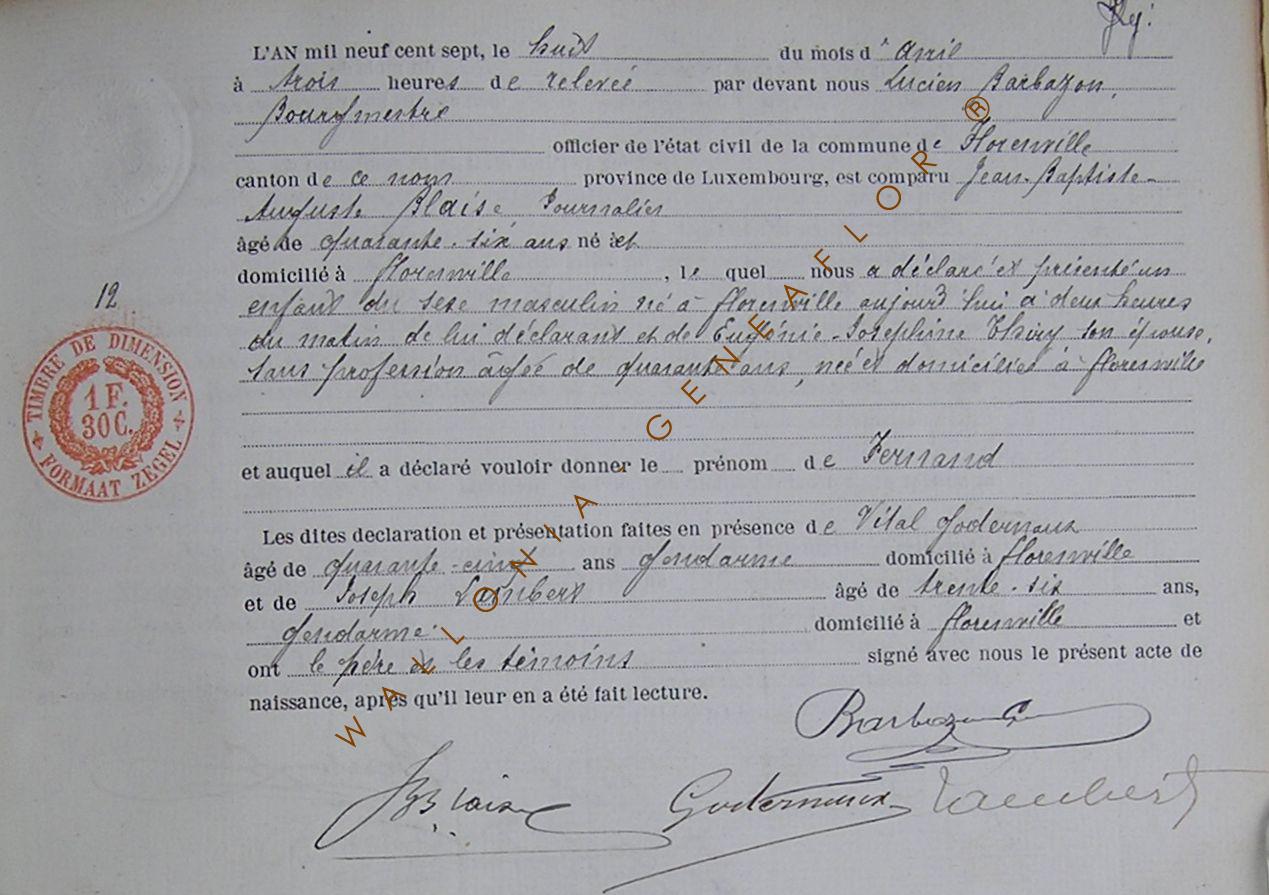 L'AN mil neuf cent sept, le huit du mois d' avril
à trois heures de relevée par devant nous Lucien Barbazon,
Bourgmestre
officier de l'état civil de la commune de Florenville
canton de ce nom province de Luxembourg, est comparu Jean-Baptiste-
Auguste Blaise, Journalier
âgé de quarante-six ans né à et
domicilié à florenville, le quel nous a déclaré et présenté un
enfant du sexe masculin né à florenville aujourd'hui à deux heures
du matin de lui déclarant et de Eugénie-Joséphine Thiry son épouse,
sans profession âgée de quarante ans, née et domiciliée à florenville
et auquel il a déclaré vouloir donner le prénom de Fernand
Les dites declaration et présentation faites en présence de Vital Godernaux
âgé de quarante-cinq ans gendarme domicilié à florenville
et de Joseph Lambert âgé de trente-six ans,
gendarme domicilié à florenville et
ont le père et les témoins signé avec nous le présent acte de
naissance, après qu'il leur en a été fait lecture.
Barbazon
JBBlaise Godernaux Lambert
12
TIMBRE DE DIMENSION
1 F.
30 C.
FORMAAT ZEGEL
WALLONIA - GENEAFLOR ®